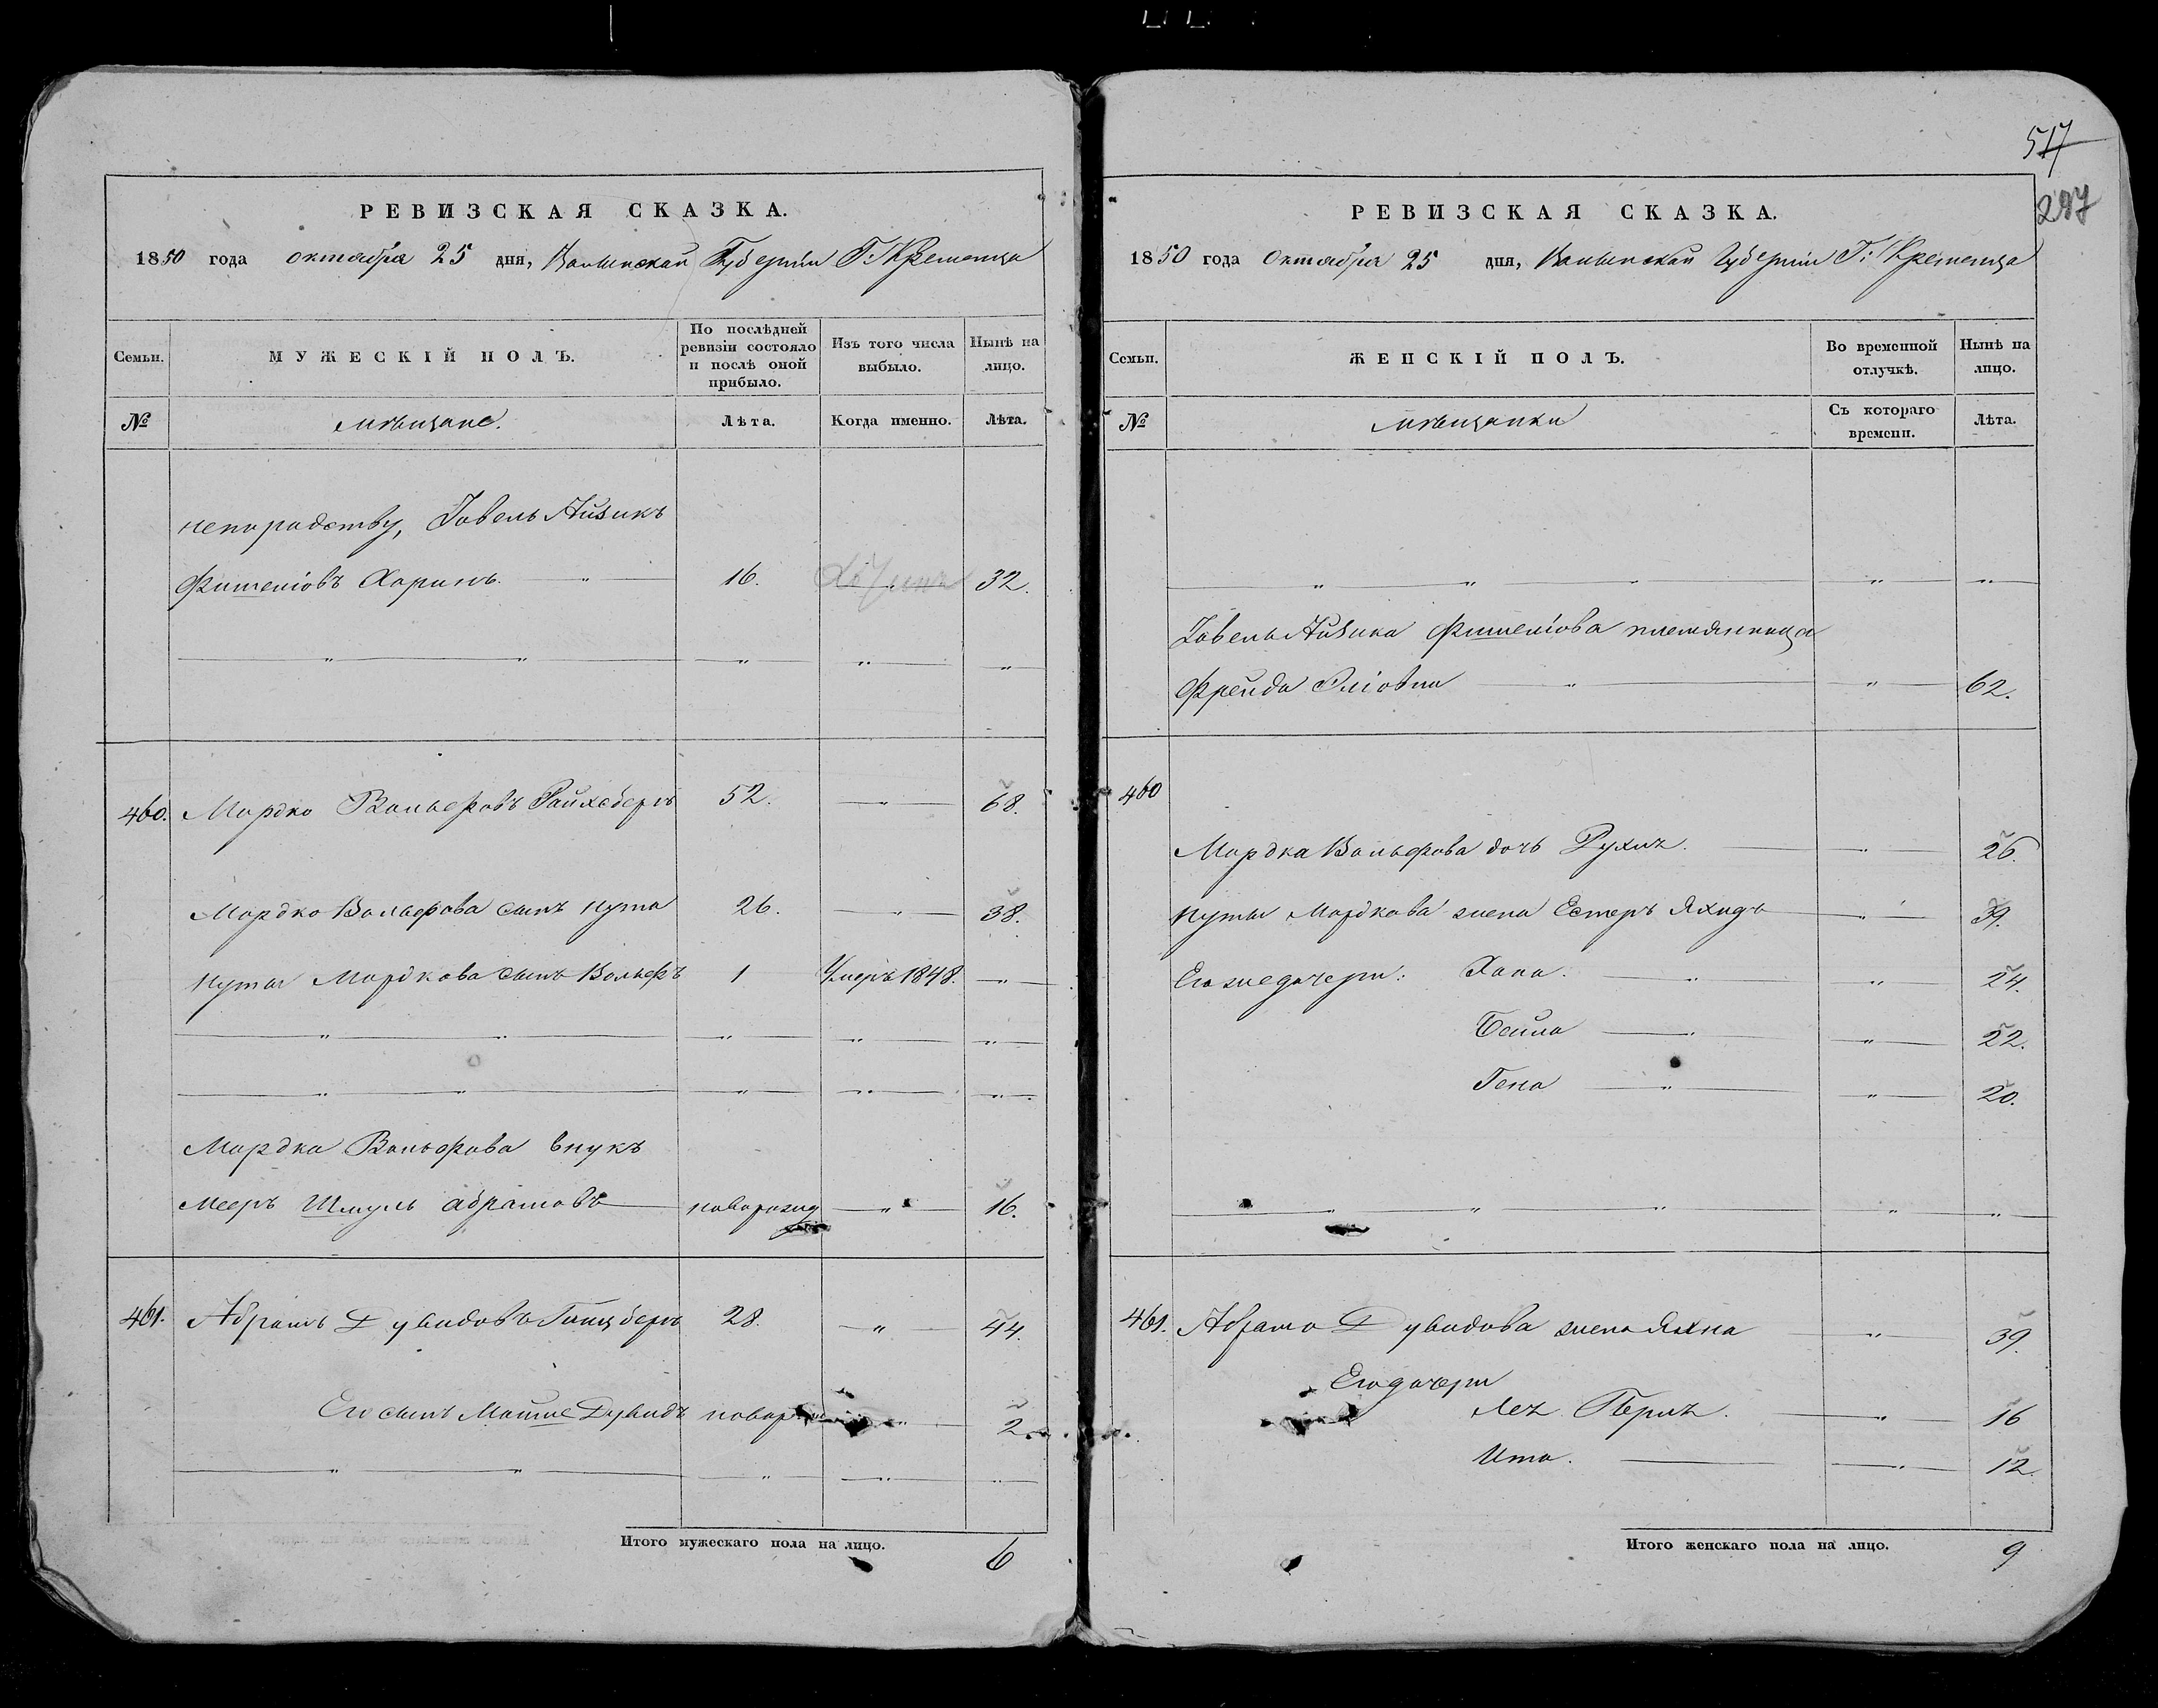 517
297
РЕВИЗСКАЯ СКАЗКА.
1850 года октября 25 дня, Волынской Губернiи Г: Кременца
Семьи.
МУЖЕСКІЙ ПОЛЪ.
По послѣдней ревизіи состояло и послѣ оной прибыло.
Изъ того числа выбыло.
Нынѣ на лицо.
№
мѣщане.
Лѣта.
Когда именно.
Лѣта.
непорадству, Іовель Айзикъ
Фишелiовъ Харинъ. " 16. 32.
" " " " "
460. Мордко Вольфовъ Райхсберъ 52. " 68.
Мордко Вольфова сынъ Нута 26. " 38.
Нуты Мордкова сынъ Вольфъ 1 Умеръ 1848. "
" " " " "
" " " " "
Мордка Вольфова внукъ
Мееръ Шмуль Абрамовъ новорожд " 16.
461. Абрамъ Дувидовъ Гинцберъ 28. " 44.
Его сынъ Мошке Дувидъ " 2
" " " " "
Итого мужескаго пола на лицо. 6
РЕВИЗСКАЯ СКАЗКА.
1850 года Октября 25 дня, Волынской Губернiи Г: Кременца
Семьи.
ЖЕНСКІЙ ПОЛЪ.
Во временной отлучкѣ.
Нынѣ на лицо.
№
мѣщанки
Съ котораго времени.
Лѣта.
" " " " "
Іовель Айзика Фишелiова племянница
Фрейда Элiовна " " 62.
460
Мордка Вольфова дочь Рухля. " 26.
Нуты Мордкова жена Естеръ Яхидъ " 39.
Его же дочери: Хана. " " 24.
Бейла " " 22.
Гена " " 20.
" " " " "
461. Абрама Дувидова жена Яхна " 39.
Его дочери
Лея Перля. " 16
Ита. " 12.
Итого женскаго пола на лицо. 9